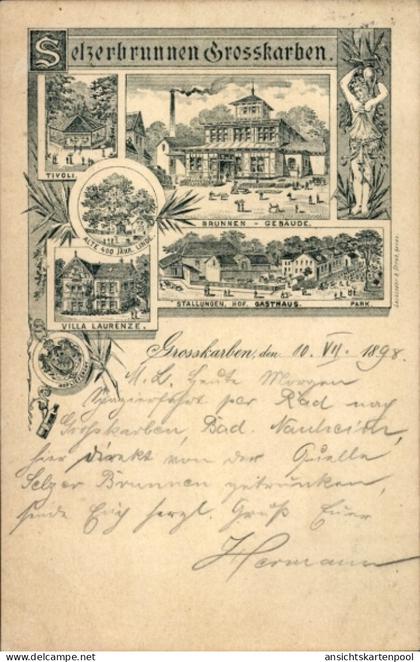 Selzerbrunnen Grosskarben.
TIVOLI.
BRUNNEN - GEBÄUDE.
ALTE 400 JÄHR. LINDE
VILLA LAURENZE.
STALLUNGEN, HOF. GASTHAUS. PARK.
Grosskarben, den 10. VII. 1898
M. L. Heute Morgen
Spazierfahrt per Rad nach
Grosskarben, Bad Nauheim,
hier direkt von der Quelle
Selzer Brunnen getrunken,
sende Euch herzl. Gruß Euer
Hermann
www.ansichtskartenpool.de
ansichtskartenpool.com